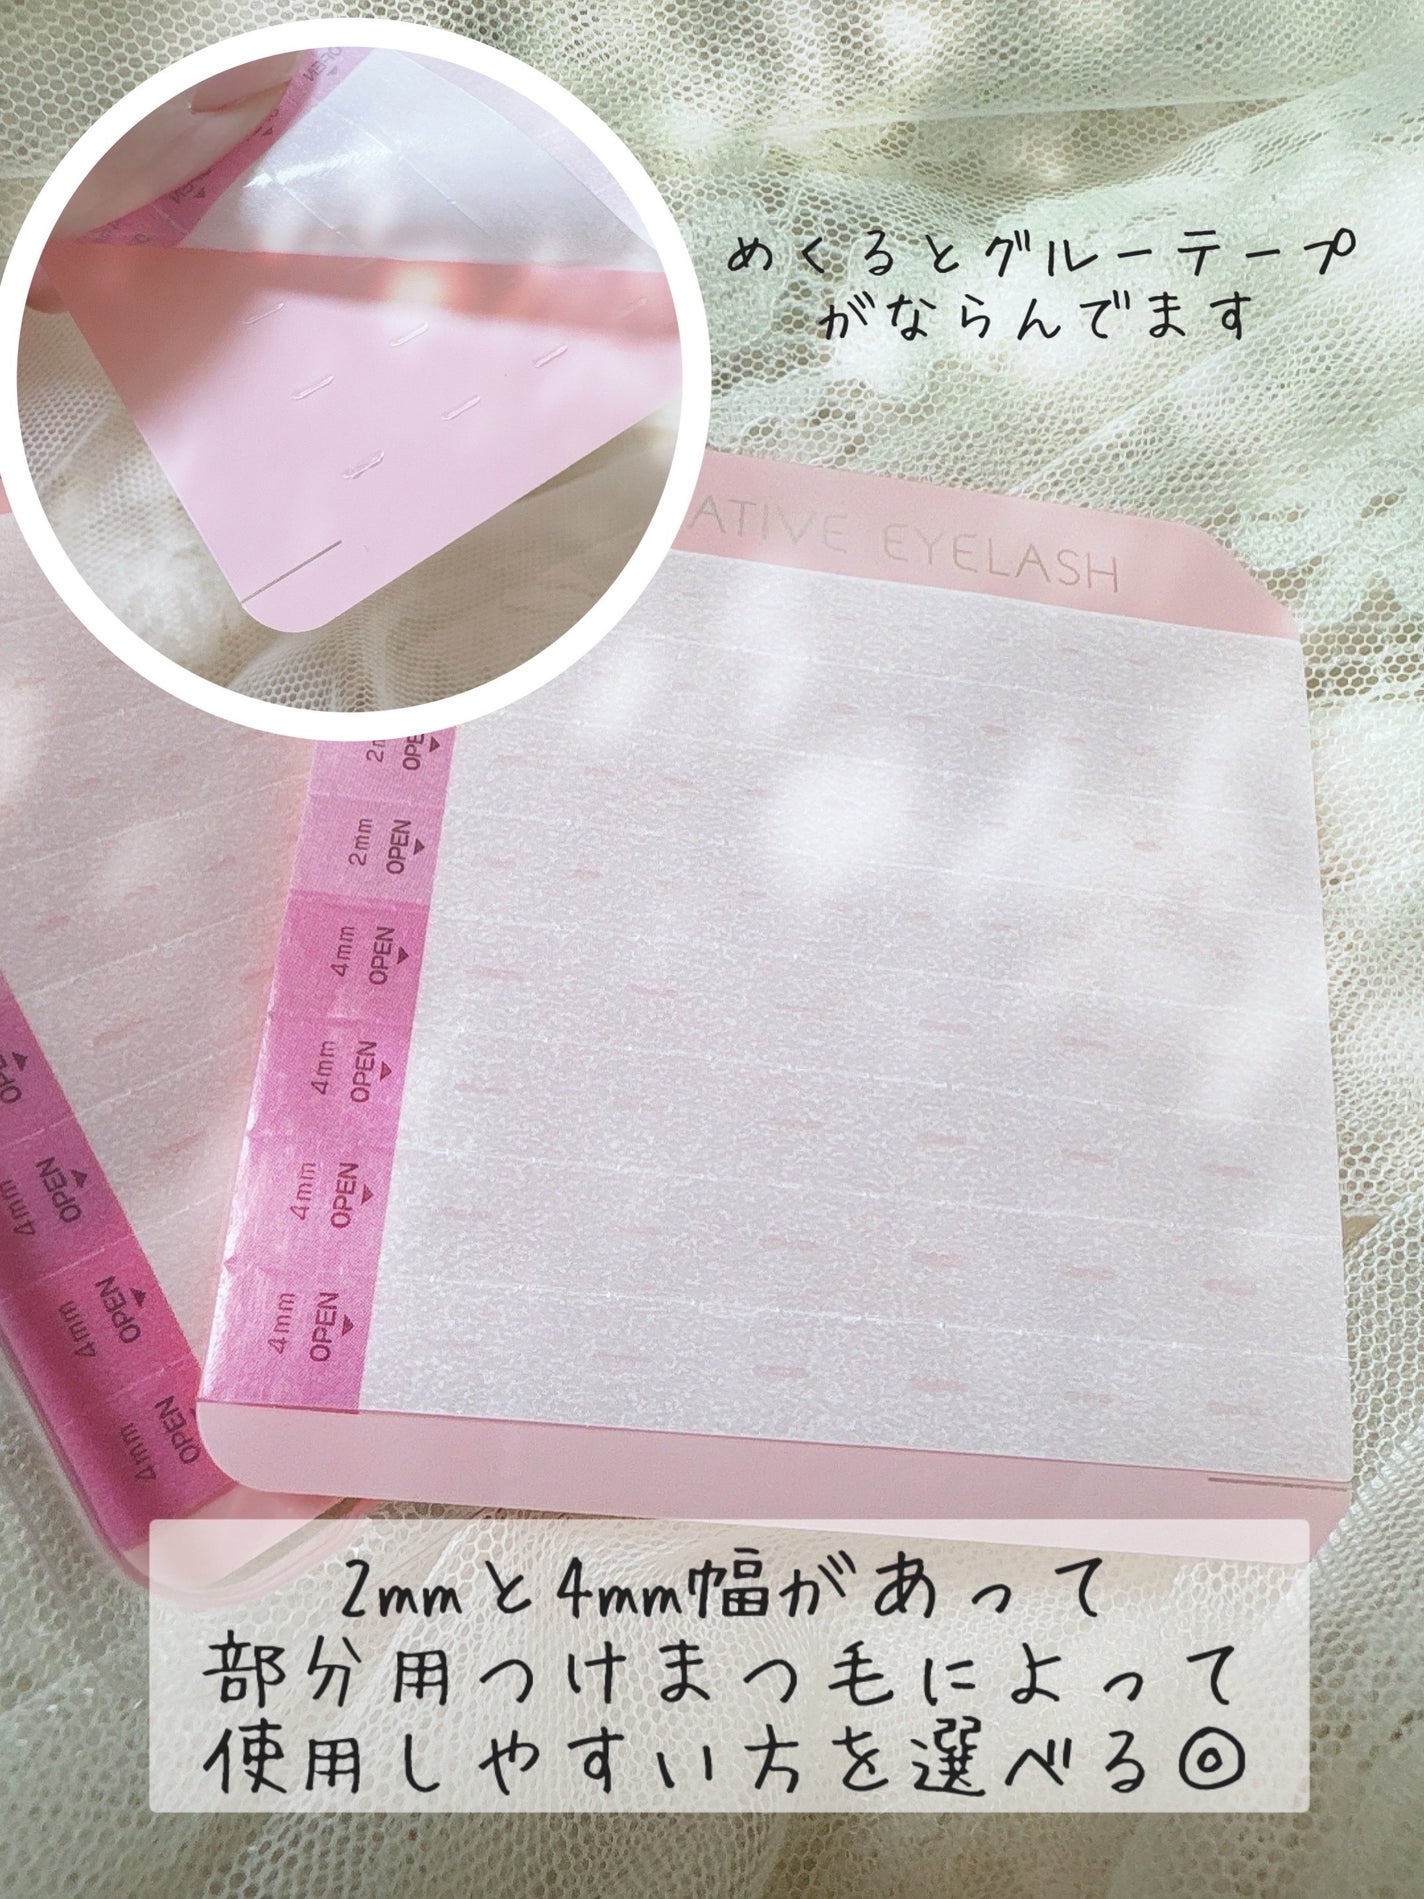 OPEN
めくるとグルーテープ
がならんでます
ATIVE EYELASH
OPE
2mm OPEN
4mm OPEN
4mm OPEN
4mm OPEN
4mm OPEN
OPE
4mm OPEN
4mm OPEN
4mm OPEN
2mmと4mm幅があって
部分用つけまつ毛によって
使用しやすい方を選べる◎